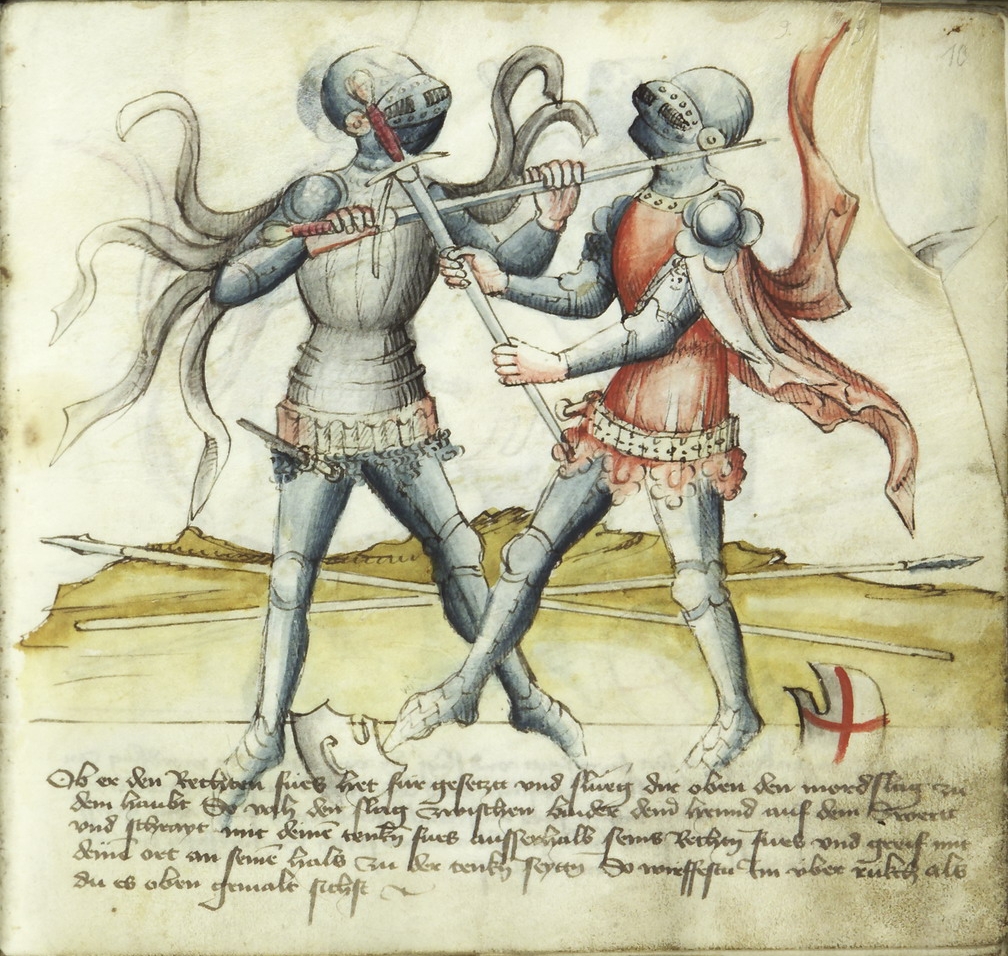 10
Ob er den Rechten fues het fur gesetzt vnd slueg dir oben den mordslag zu
dem haubt So vach den slag zwischen baider deiner hennd auf dein Swert
vnd schreyt mit deinē tenkñ fues ausserhalb seins Rechtñ fues vnd greif mit
deinē ort an seinē hals zu der tenkñ seytñ So wirffestu Im vber rukk als
du es oben gemalt sichst